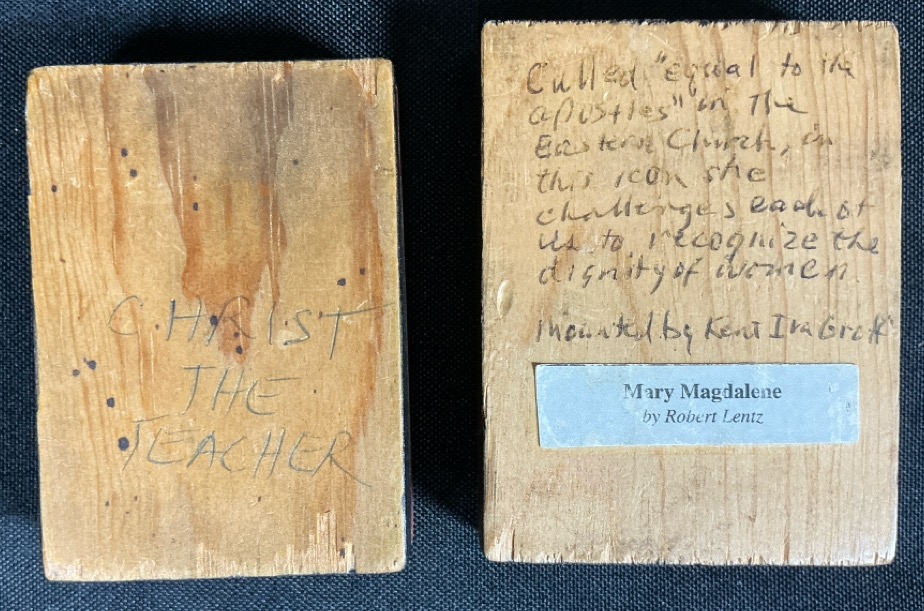 CHRIST
THE
TEACHER
Called "equal to the
apostles" in the
Eastern Church, in
this icon she
challenges each of
us to recognize the
dignity of women.
Mounted by Kent Ira Groff
Mary Magdalene
by Robert Lentz